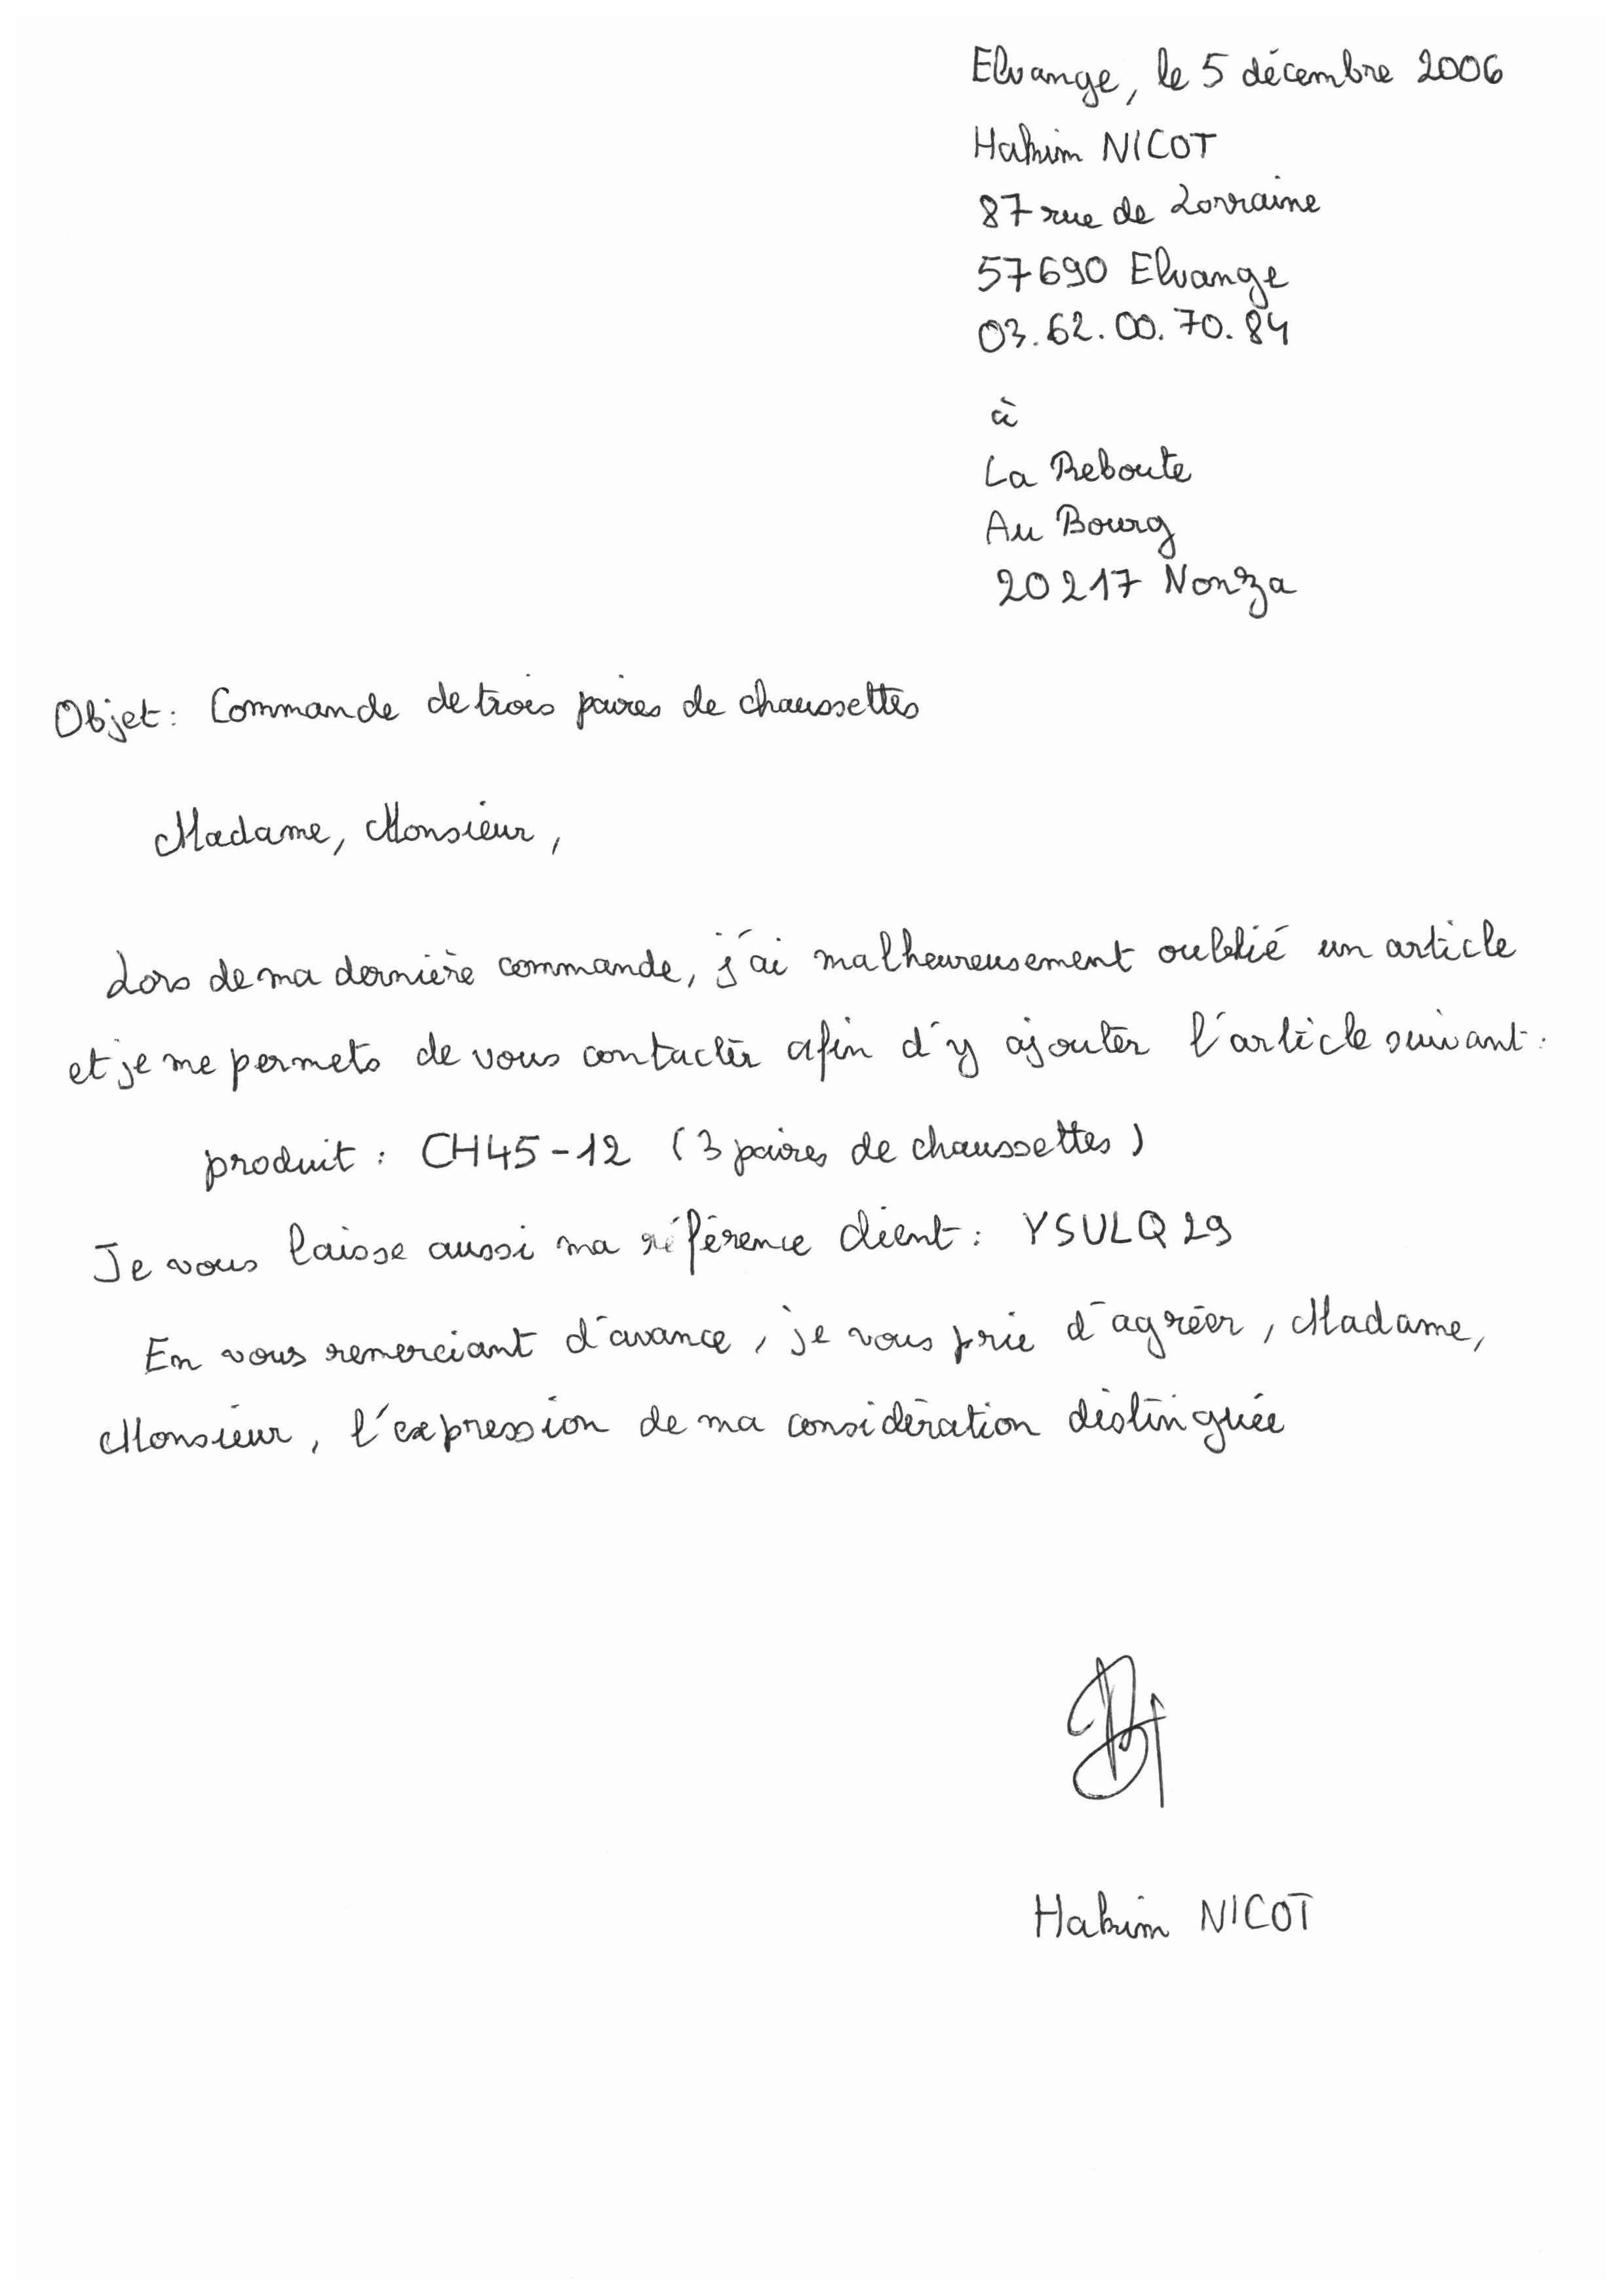 Elvange, le 5 décembre 2006
Hakim NICOT
87 rue de Lorraine
57690 Elvange
03.62.00.70.84
à
La Reboute
Au Bourg
20217 Nonza
Objet: Commande de trois paires de chaussettes
Madame, Monsieur,
Lors de ma dernière commande, j'ai malheureusement oublié un article
et je me permets de vous contacter afin d'y ajouter l'article suivant:
produit: CH45-12 (3 paires de chaussettes)
Je vous laisse aussi ma référence client: YSULQ29
En vous remerciant d'avance, je vous prie d'agréer, Madame,
Monsieur, l'expression de ma considération distinguée
Hakim NICOT